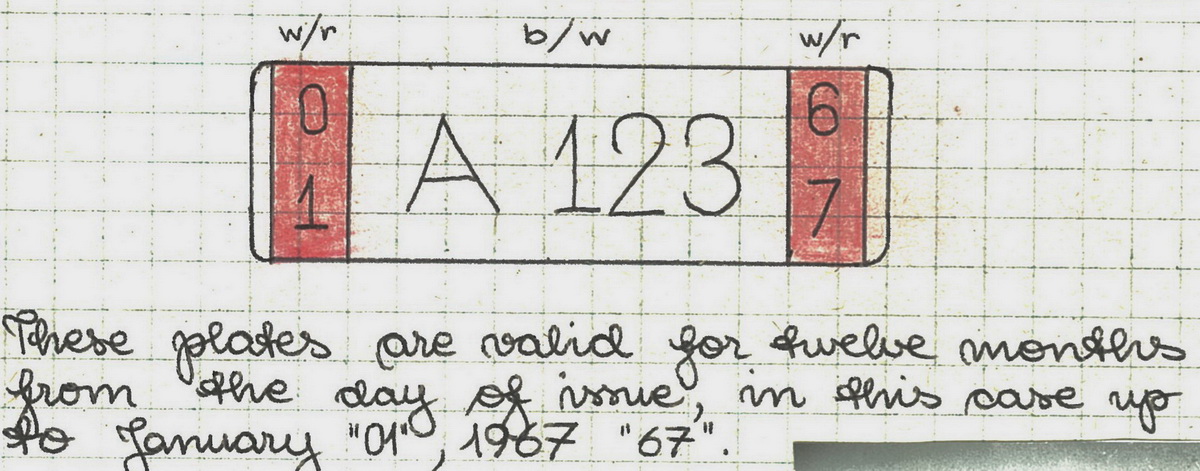 w/r b/w w/r
0 6
A 123
1 7
These plates are valid for twelve months
from the day of issue, in this case up
to January "01", 1967 "67".